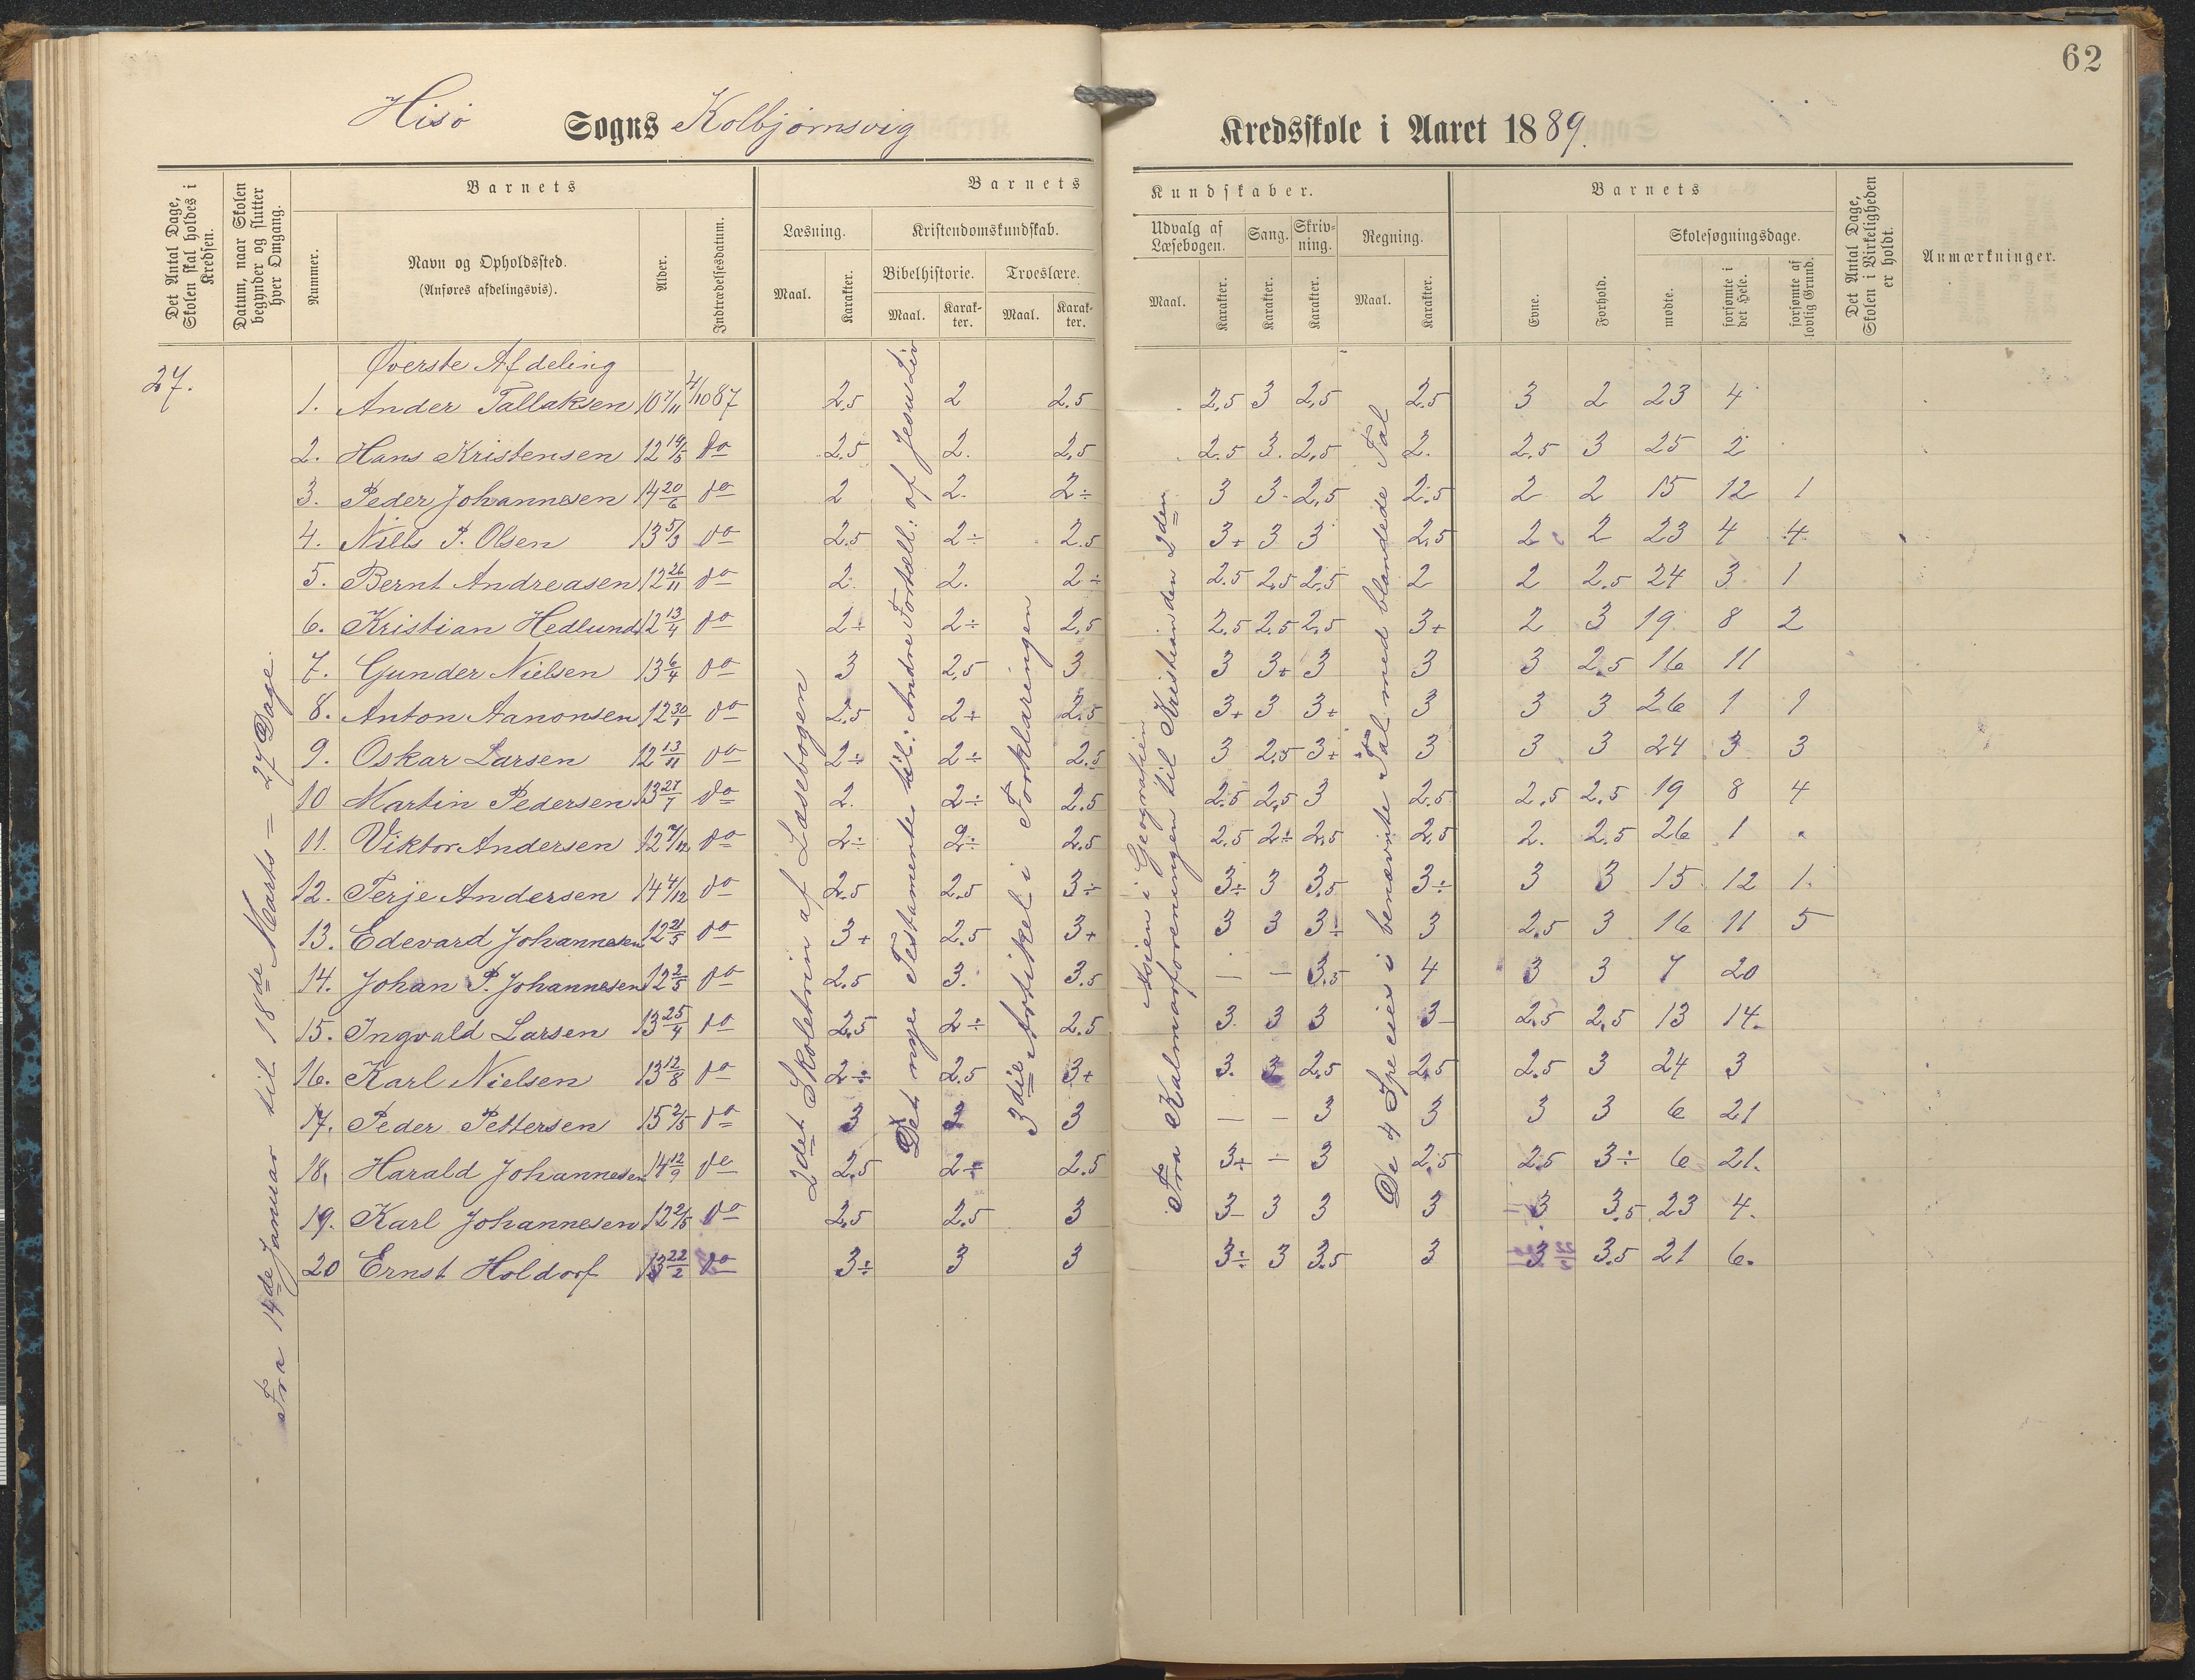 62
Hisö Sogns Kolbjörnsvig Kredsskole i Aaret 1889.
Det Antal Dage, Skolen skal holdes i Kredsen.
Datum, naar Skolen begynder og slutter hver Omgang.
Barnets
Nummer.
Navn og Opholdssted.
(Anføres afdelingsvis).
Alder.
Indtrædelsesdatum.
Barnets Kundskaber.
Læsning.
Maal.
Karakter.
Kristendomskundskab.
Bibelhistorie.
Maal.
Karakter.
Troeslære.
Maal.
Karakter.
Udvalg af Læsebogen.
Maal.
Karakter.
Sang.
Karakter.
Skrivning.
Karakter.
Regning.
Maal.
Karakter.
Barnets
Evne.
Forhold.
Skolesøgningsdage.
mødte.
forsømte i det Hele.
forsømte af lovlig Grund.
Det Antal Dage, Skolen i Virkeligheden er holdt.
Anmærkninger.
27.
Fra 14de Januar til 18de Marts = 27 Dage.
Øverste Afdeling
2det Skoletrin af Læsebogen
Det nye Testamente til: Andre Fortæll: af Jesu Liv
3die Artikel i Forklaringen
Asien i Geografien
Fra Kalmarforeningen til Kristian den 2den
De 4 Species i benævnte Tal med blandede Tal
1. Ander Tallaksen 10 7/11 4/10 87 2.5 2 2.5 2.5 3 2,5 2.5 3 2 23 4
2. Hans Kristensen 12 14/5 do 2.5 2. 2,5 2.5 3. 2,5 2. 2,5 3 25 2
3. Peder Johannesen 14 20/6 do 2 2. 2÷ 3 3- 2,5 2.5 2 2 15 12 1
4. Niels P. Olsen 13 5/3 do 2.5 2÷ 2.5 3+ 3 3 2,5 2 2 23 4 4
5. Bernt Andreasen 12 26/11 do 2. 2. 2÷ 2.5 2,5 2,5 2 2 2.5 24 3 1
6. Kristian Hedlund 12 13/4 do 2÷ 2÷ 2,5 2.5 2.5 2,5 3+ 2 3 19 8 2
7. Gunder Nielsen 13 6/4 do 3 2,5 3 3 3+ 3 3 3 2.5 16 11
8. Anton Aanonsen 12 30/1 do 2.5 2÷ 2.5 3+ 3 3+ 3 3 3 26 1 1
9. Oskar Larsen 12 13/11 do 2÷ 2÷ 2.5 3 2,5 3+ 3 3 3 24 3 3
10 Martin Pedersen 13 27/7 do 2. 2÷ 2.5 2.5 2,5 3 2.5 2,5 2,5 19 8 4
11. Viktor Andersen 12 7/12 do 2÷ 2÷ 2.5 2.5 2÷ 2,5 2,5 2. 2.5 26 1
12. Terje Andersen 14 4/12 do 2.5 2.5 3÷ 3÷ 3 3,5 3÷ 3 3 15 12 1.
13. Edevard Johannesen 12 21/5 do 3+ 2.5 3+ 3 3 3÷ 3 2,5 3 16 11 5
14. Johan P. Johannesen 12 2/5 do 2.5 3. 3.5 — — 3,5 4 3 3 7 20
15. Ingvald Larsen 13 25/4 do 2,5 2÷ 2.5 3. 3 3 3- 2.5 2,5 13 14.
16. Karl Nielsen 13 12/8 do 2÷ 2.5 3+ 3. 3 2,5 2,5 2.5 3 24 3
17. Peder Pettersen 15 2/5 do 3 3 3 — — 3 3 3 3 6 21
18. Harald Johannesen 14 12/9 do 2,5 2÷ 2.5 3+ — 3 2,5 2.5 3÷ 6 21.
19. Karl Johannesen 12 2/5 do 2,5 2,5 3 3- 3 3 3 3 3.5 23 4.
20 Ernst Holdorf 13 22/2 do 3÷ 3 3 3÷ 3 3.5 3 3 3.5 21 6.